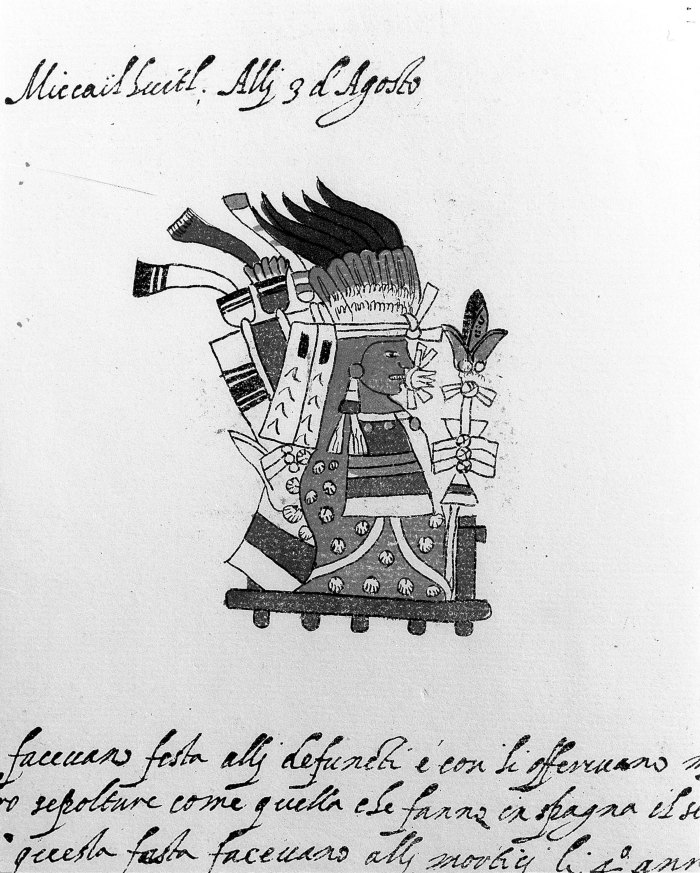 Miccailhuitl. Allj 3 d'Agosto
facevano festa allj defuncti é con li offerivano
ro sepolture come quella che fanno in spagna il
questa festa facevano allj mortici li 4º ann